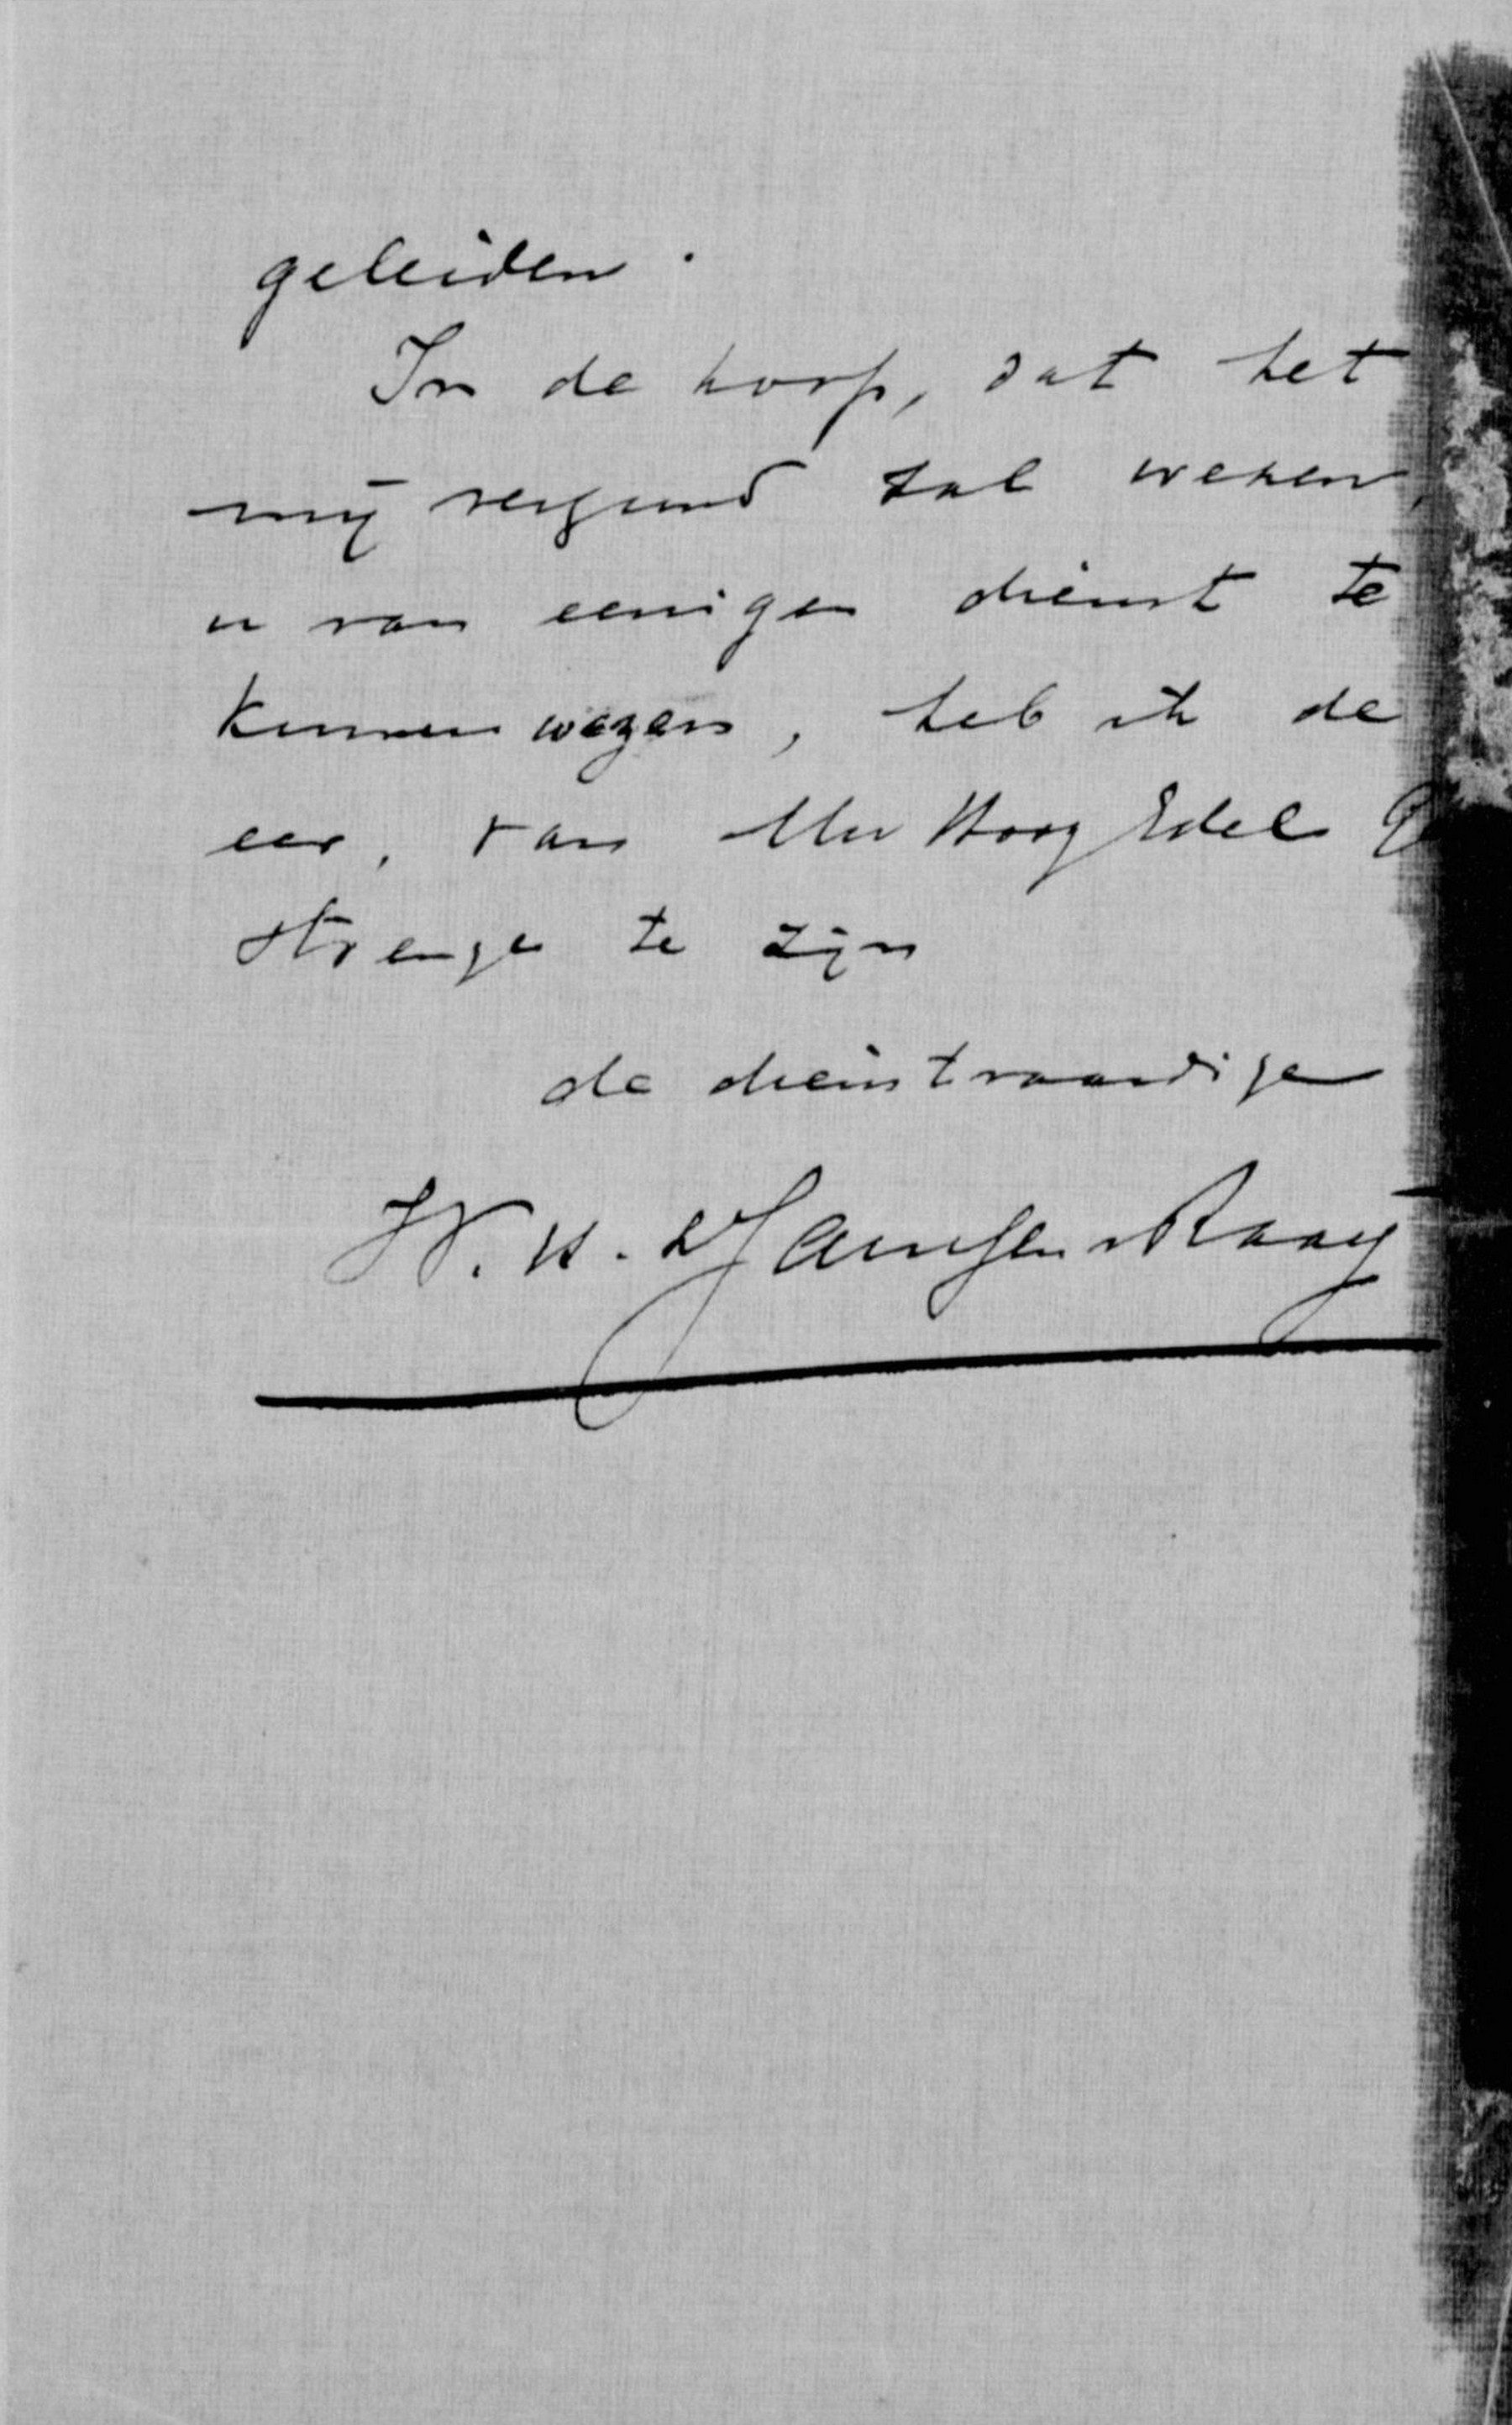 geleiden.
In de hoop, dat het
mij vergund zal wezen,
u van eenigen dienst te
kunnen wezen, heb ik de
eer, van Uw Hoog Edel Ge
strenge te zijn
de dienstvaardige
W. H. d